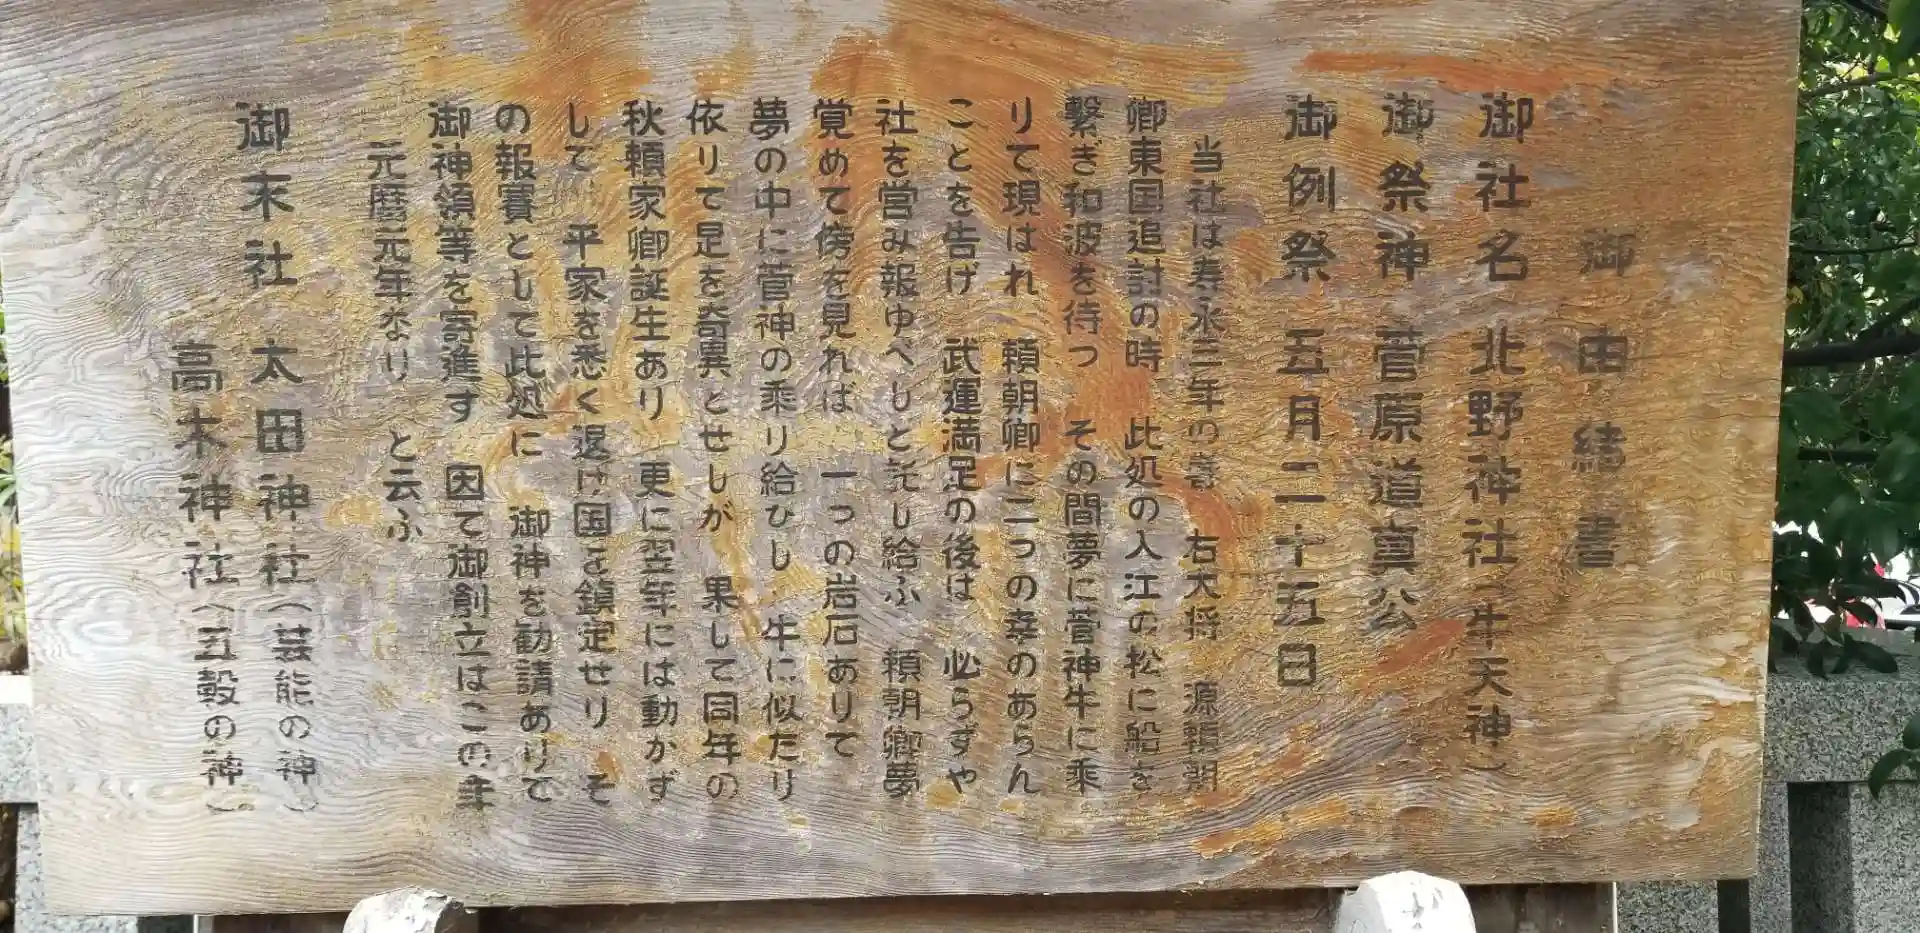 御由緒書
御社名 北野神社(牛天神)
御祭神 菅原道真公
御例祭 五月二十五日
当社は寿永三年の春 右大将 源頼朝
卿東国追討の時 此処の入江の松に船を
繋ぎ和波を待つ その間夢に菅神牛に乘
りて現はれ 頼朝卿に二つの幸のあらん
ことを告げ 武運満足の後は 必らずや
社を営み報ゆべしと託し給ふ 頼朝卿夢
覚めて傍を見れば 一つの岩石ありて
夢の中に菅神の乘り給ひし 牛に似たり
依りて是を奇異とせしが 果して同年の
秋頼家卿誕生あり 更に翌年には動かず
して 平家を悉く退け国を鎮定せり そ
の報賽として此処に 御神を勧請ありて
御神領等を寄進す 因て御創立はこの年
元暦元年なり と云ふ
御末社 太田神社(芸能の神)
高木神社(五穀の神)